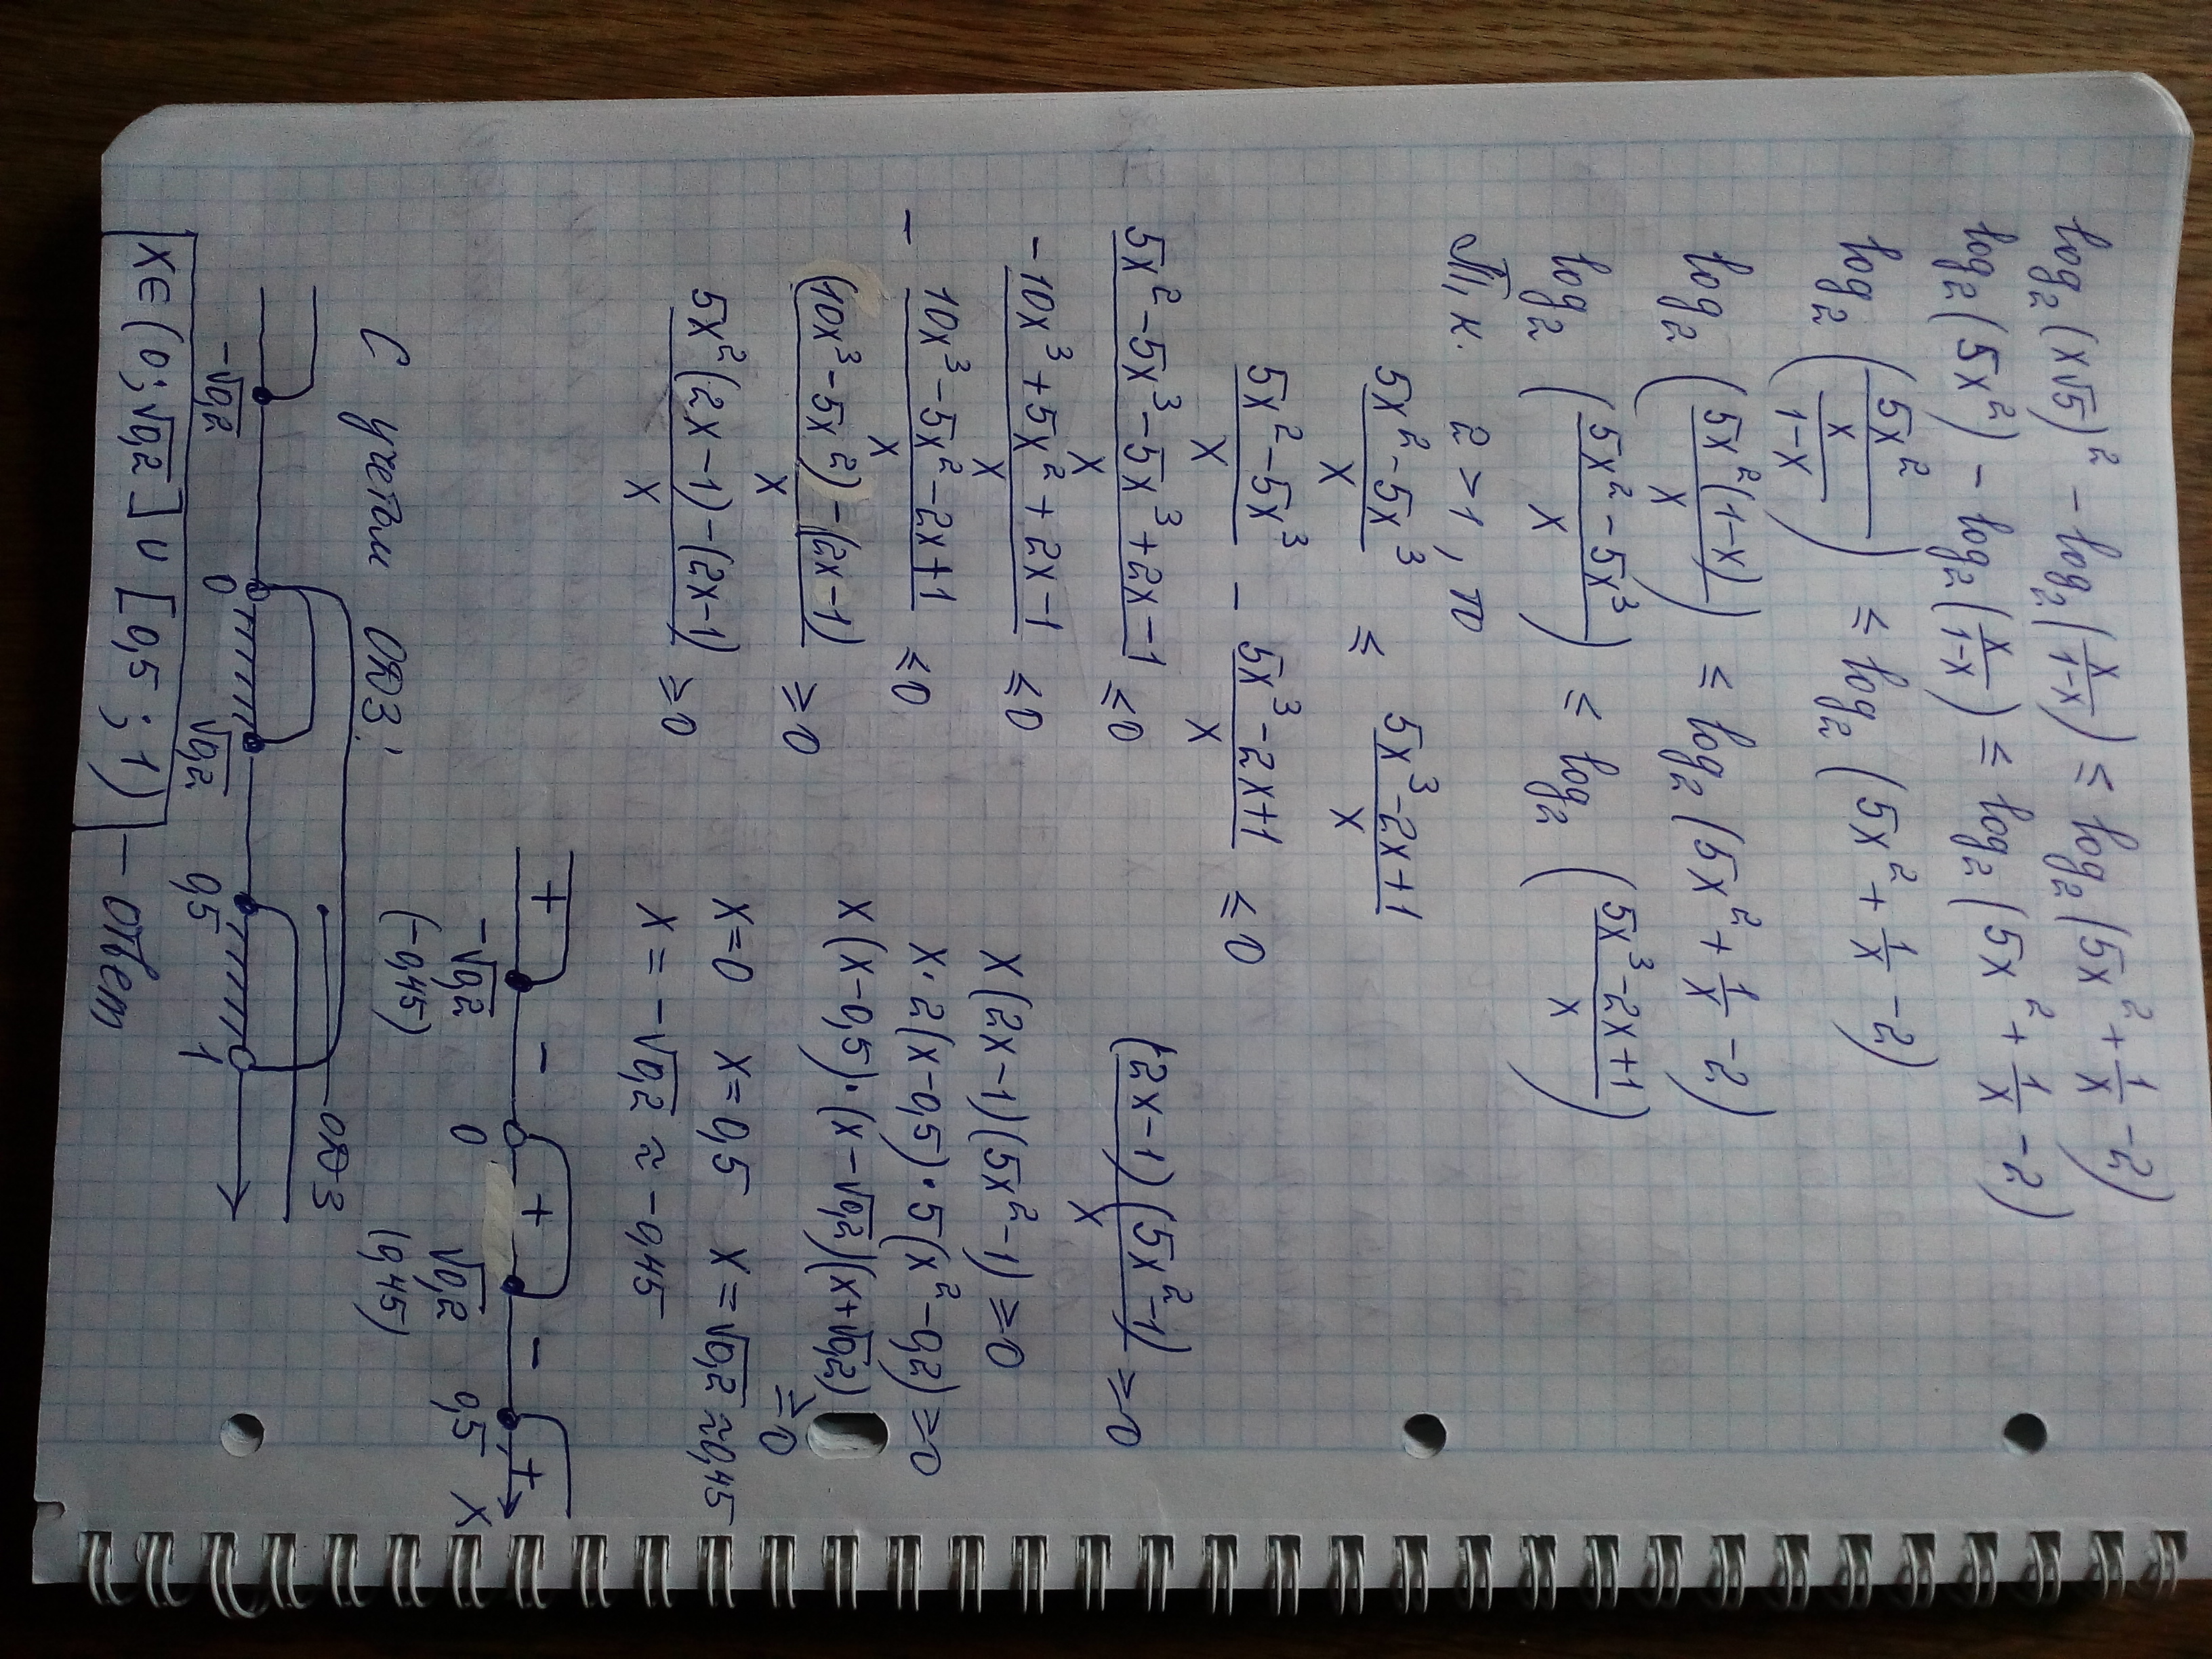 log₂(x√5)² − log₂(x/(1−x)) ≤ log₂(5x² + 1/x − 2)
log₂(5x²) − log₂(x/(1−x)) ≤ log₂(5x² + 1/x − 2)
log₂(5x²/(x/(1−x))) ≤ log₂(5x² + 1/x − 2)
log₂(5x²(1−x)/x) ≤ log₂(5x² + 1/x − 2)
log₂((5x² − 5x³)/x) ≤ log₂((5x³ − 2x + 1)/x)
Т.к. 2 > 1, то
(5x² − 5x³)/x ≤ (5x³ − 2x + 1)/x
(5x² − 5x³)/x − (5x³ − 2x + 1)/x ≤ 0
(5x² − 5x³ − 5x³ + 2x − 1)/x ≤ 0
(−10x³ + 5x² + 2x − 1)/x ≤ 0
− (10x³ − 5x² − 2x + 1)/x ≤ 0
((10x³ − 5x²) − (2x − 1))/x ≥ 0
(5x²(2x − 1) − (2x − 1))/x ≥ 0
(2x − 1)(5x² − 1)/x ≥ 0
x(2x − 1)(5x² − 1) ≥ 0
x·2(x − 0,5)·5(x² − 0,2) ≥ 0
x(x − 0,5)·(x − √0,2)(x + √0,2) ≥ 0
x = 0 x = 0,5 x = √0,2 ≈ 0,45
x = −√0,2 ≈ −0,45
+ − + − +
−√0,2 0 √0,2 0,5 x
(−0,45) (0,45)
С учетом ОДЗ:
ОДЗ
−√0,2 0 √0,2 0,5 1
x ∈ (0; √0,2] ∪ [0,5; 1) – ответ